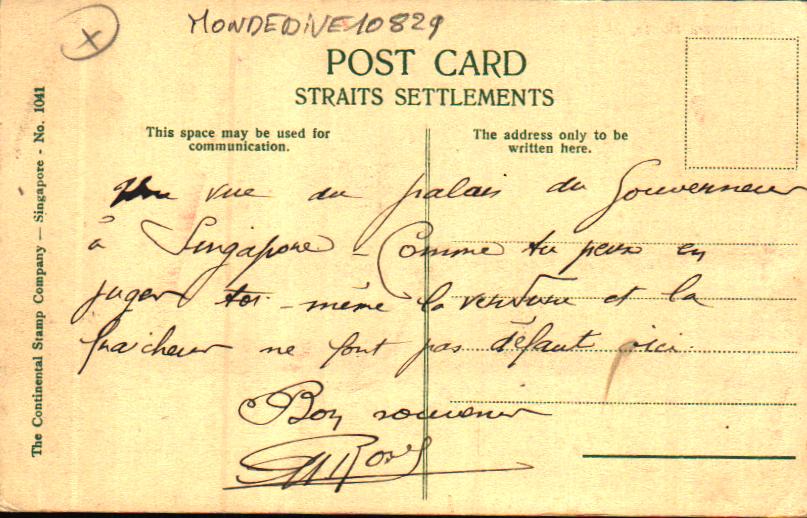 MONDEDIVE10829
X
POST CARD
STRAITS SETTLEMENTS
This space may be used for
communication.
The address only to be
written here.
The Continental Stamp Company — Singapore - No. 1041
vue du palais du Gouverneur
à Singapore - Comme tu peux en
juger toi-même la verdure et la
fraicheur ne font pas défaut ici.
Bon souvenir